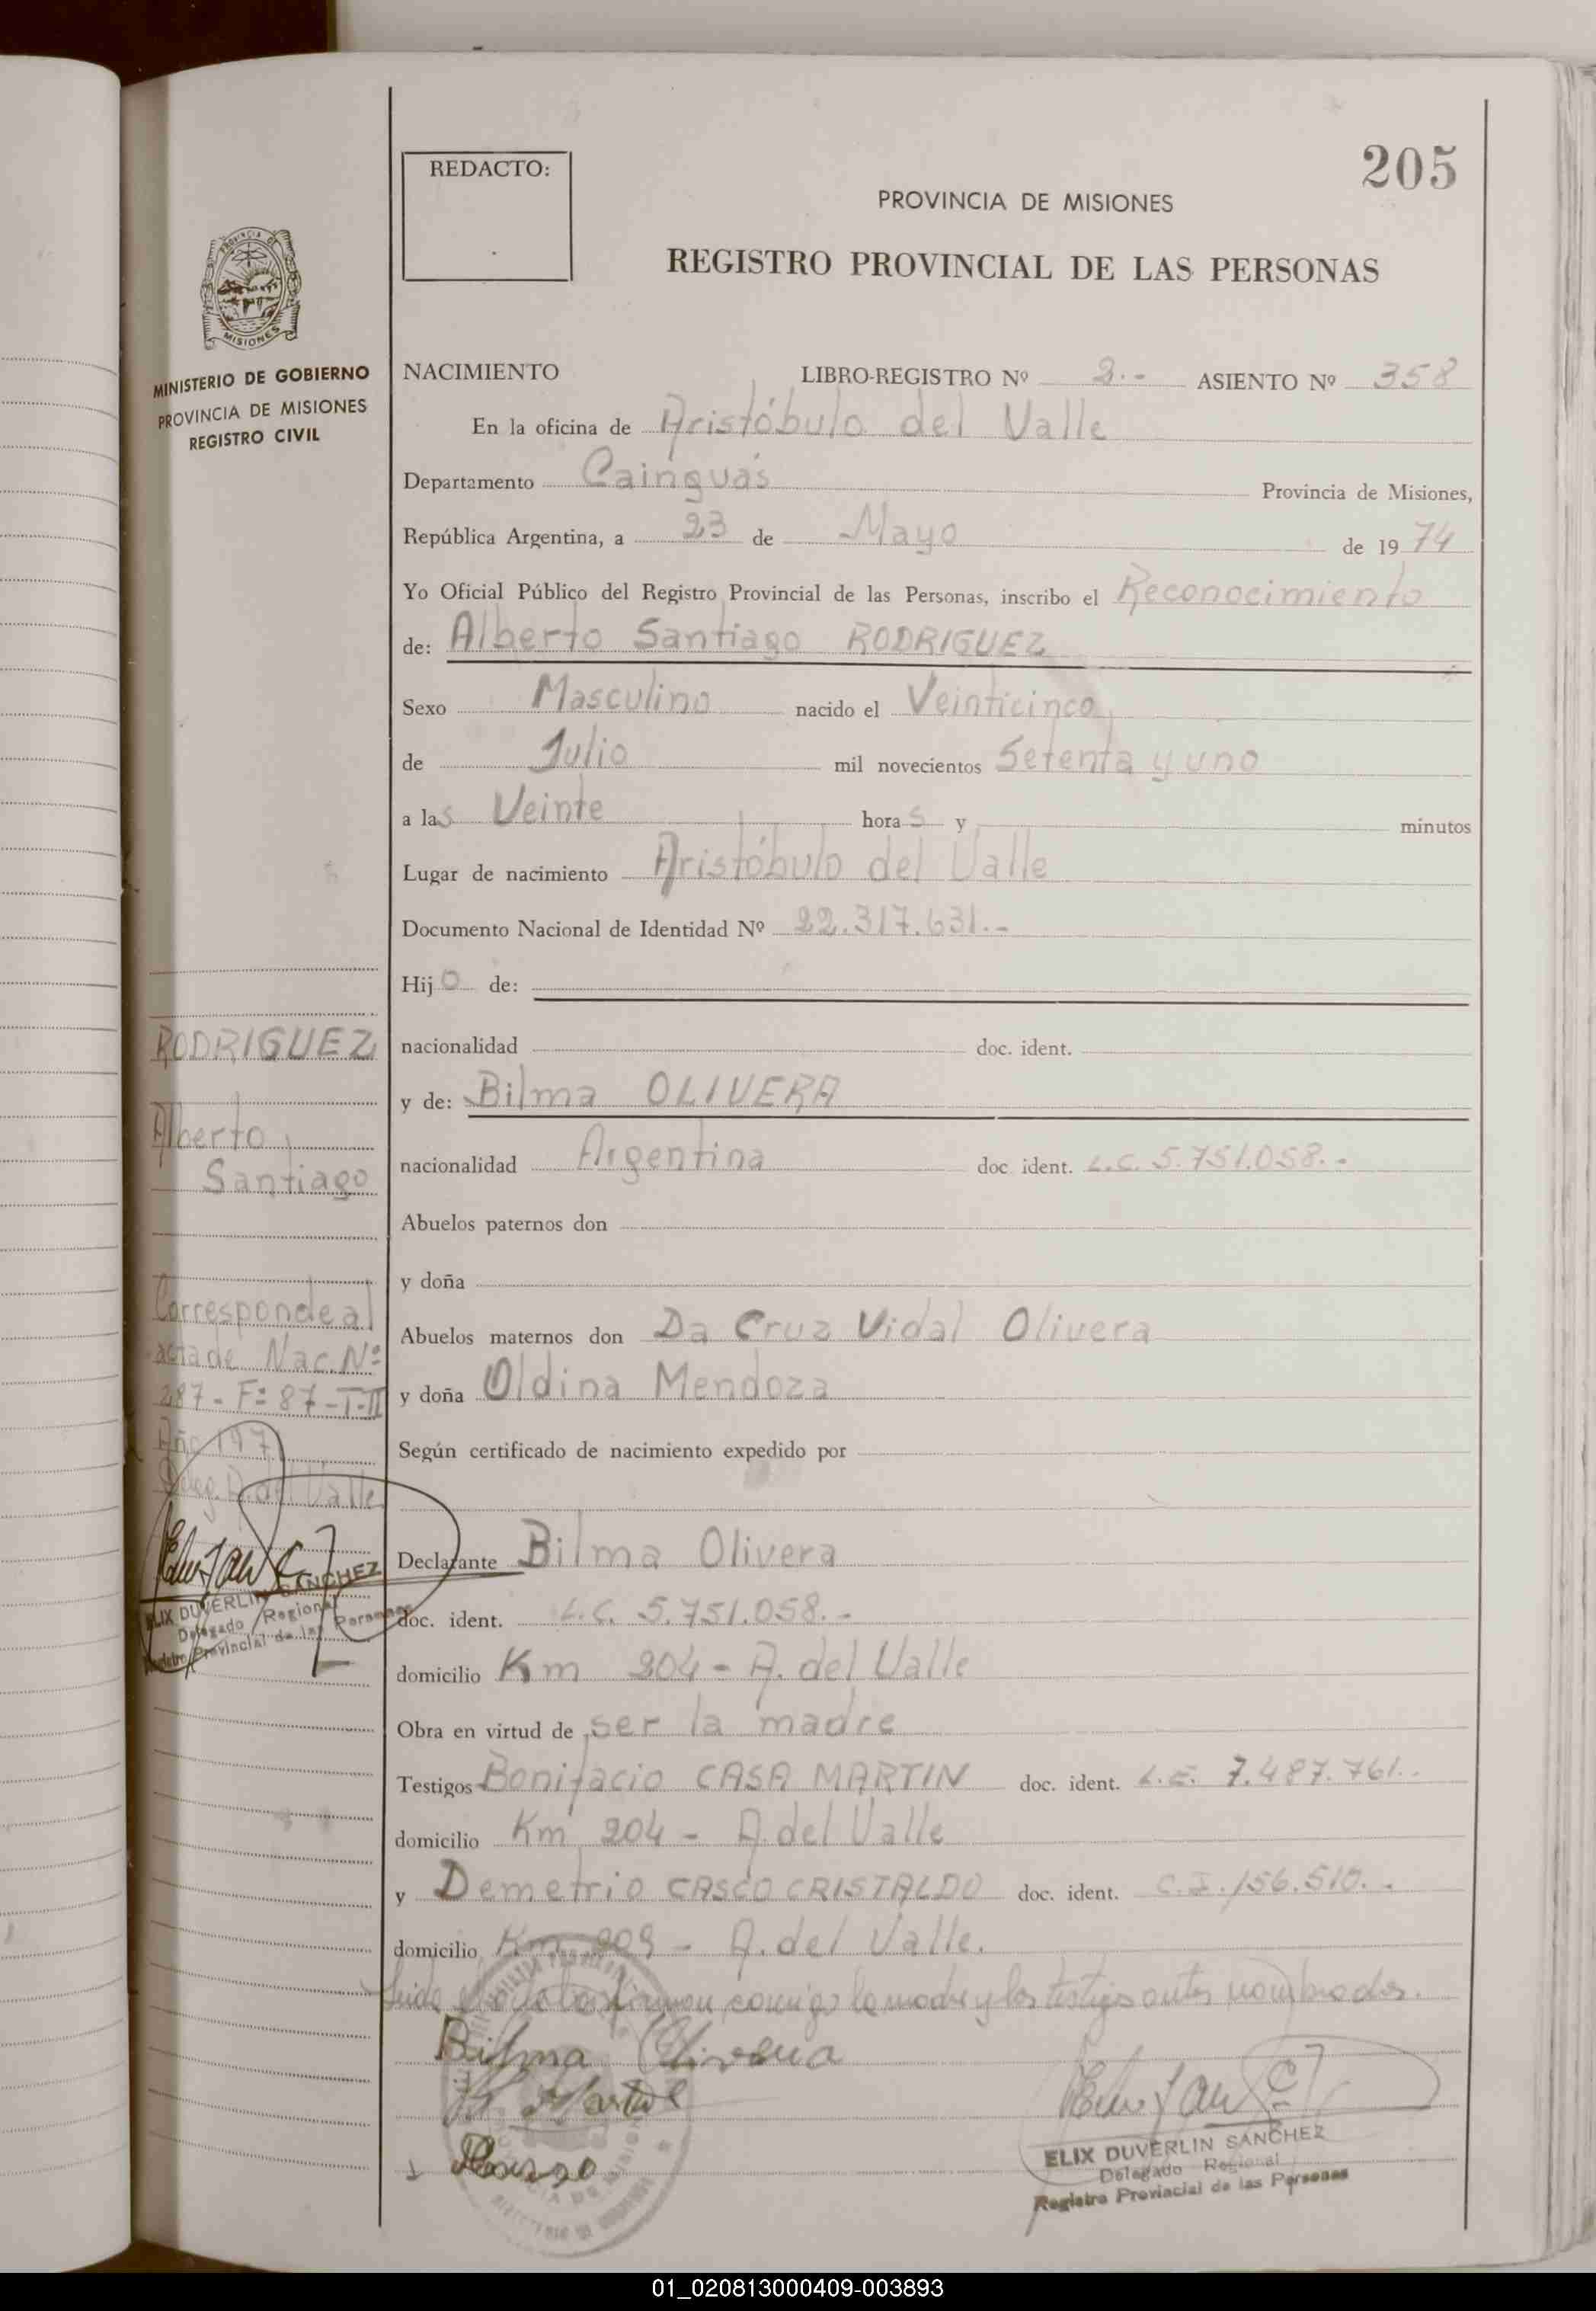 205
REDACTO:
PROVINCIA DE MISIONES
REGISTRO PROVINCIAL DE LAS PERSONAS
PROVINCIA DE
MISIONES
MINISTERIO DE GOBIERNO
PROVINCIA DE MISIONES
REGISTRO CIVIL
NACIMIENTO LIBRO-REGISTRO Nº 2.- ASIENTO Nº 358
En la oficina de Aristóbulo del Valle
Departamento Cainguás Provincia de Misiones,
República Argentina, a 23 de Mayo de 1974
Yo Oficial Público del Registro Provincial de las Personas, inscribo el Reconocimiento
de: Alberto Santiago RODRIGUEZ
Sexo Masculino nacido el Veinticinco
de Julio mil novecientos Setenta y uno
a las Veinte horas y minutos
Lugar de nacimiento Aristóbulo del Valle
Documento Nacional de Identidad Nº 22.317.631.-
Hijo de:
nacionalidad doc. ident.
y de: Bilma OLIVERA
nacionalidad Argentina doc. ident. L.C. 5.751.058.-
Abuelos paternos don
y doña
Abuelos maternos don Da Cruz Vidal Olivera
y doña Oldina Mendoza
Según certificado de nacimiento expedido por
Declarante Bilma Olivera
doc. ident. L.C. 5.751.058.-
domicilio Km 204 - A. del Valle
Obra en virtud de ser la madre
Testigos Bonifacio CASA MARTIN doc. ident. L.E. 7.487.761.-
domicilio Km 204 - A. del Valle
y Demetrio CASCO CRISTALDO doc. ident. C.I. 156.510.-
domicilio Km 209 - A. del Valle.
Leida el acta la firman conmigo la madre y los testigos antes nombrados.
Bilma Olivera
ELIX DUVERLIN SANCHEZ
Delegado Regional
Registro Provincial de las Personas
RODRIGUEZ
Alberto
Santiago
Corresponde al
acta de Nac. Nº
287 - Fº 87 - T-II
Año 197
Deleg. A. del Valle
ELIX DUVERLIN SANCHEZ
Delegado Regional
Registro Provincial de las Personas
01_020813000409-003893